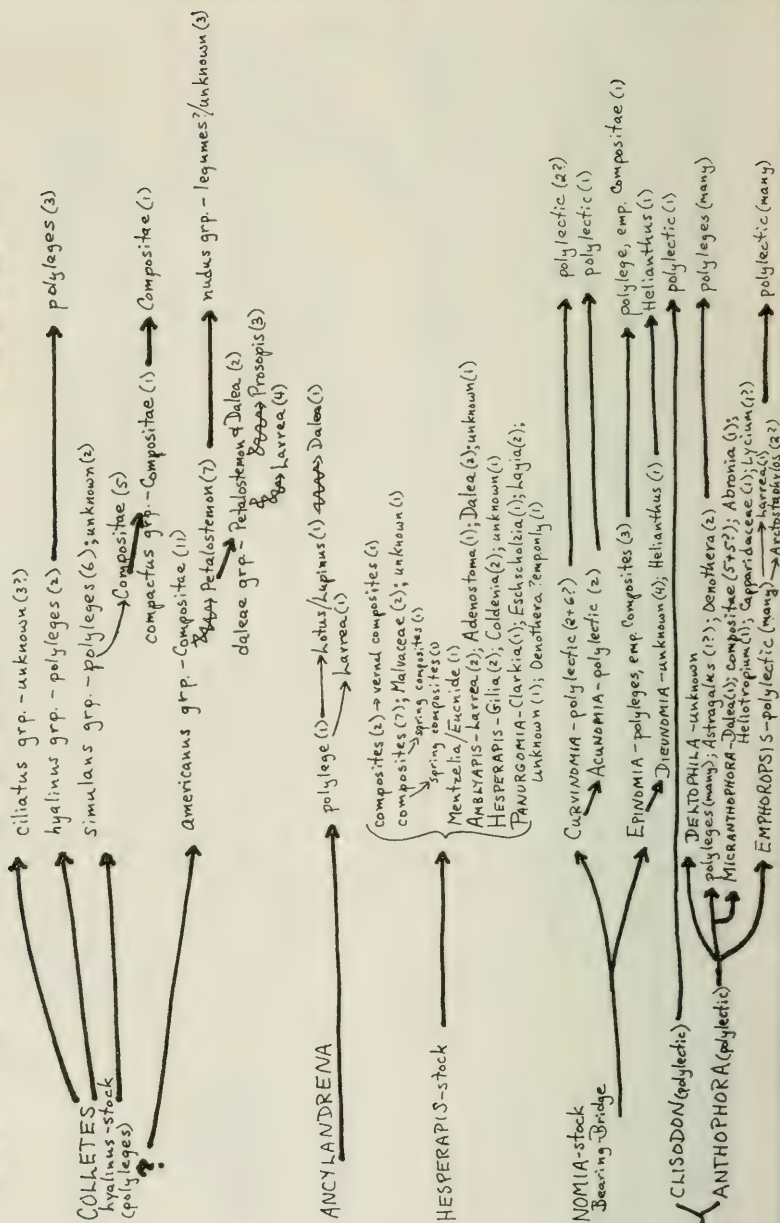 COLLETES
hyalinus-stock
(polyleges)
?
ciliatus grp. - unknown (3?)
hyalinus grp. - polyleges (2)
polyleges (3)
simulans grp. - polyleges (6); unknown (2)
Compositae (5)
compactus grp. - Compositae (1)
Compositae (1)
americanus grp. - Compositae (11)
Petalostemon (7)
nudus grp. - legumes?/unknown (3)
daleae grp - Petalostemon & Dalea (2)
Prosopis (3)
Larrea (4)
ANCYLANDRENA
polylege (1)
Lotus/Lupinus (1)
Dalea (1)
Larrea (1)
HESPERAPIS-stock
composites (2) → vernal composites (1)
composites (7); Malvaceae (2); unknown (1)
spring composites (1)
spring composites (1)
Mentzelia/Eucnide (1)
AMBLYAPIS-Larrea (2); Adenostoma (1); Dalea (2); unknown (1)
HESPERAPIS-Gilia (2); Coldenia (2); unknown (1)
PANURGOMIA-Clarkia (1); Eschscholzia (1); Layia (2);
unknown (1); Oenothera ?emp. only (1)
NOMIA-stock
Bearing-Bridge
CURVINOMIA-polylectic (2+6?)
polylectic (2?)
ACUNOMIA-polylectic (2)
polylectic (1)
EPINOMIA-polyleges, emp. Composites (3)
polylege, emp. Compositae (1)
DIEUNOMIA-unknown (4); Helianthus (1)
Helianthus (1)
CLISODON (polylectic)
polylectic (1)
ANTHOPHORA (polylectic)
DELTOPHILA-unknown
polyleges (many); Astragalus (1?); Oenothera (2)
polyleges (many)
MICRANTHOPHORA-Dalea (1); Compositae (5+5?); Abronia (1);
Heliotropium (1); Capparidaceae (1); Lycium (1?)
EMPHOROPSIS-polylectic (many)
Larrea (1)
Arctostaphylos (2?)
polylectic (many)